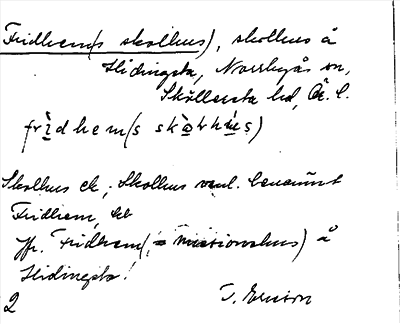 Fridhem(s skolhus), skolhus å
Hidingsta, Norrbyås sn,
Sköllersta hd, Ör. l.
frìdhem(s skò̱lhú̱s)
Skolhus ek, Skolhus vanl. benämnt
Fridhem,
Jfr. Fridhem(, = missionshus) å
Hidingsta!
2